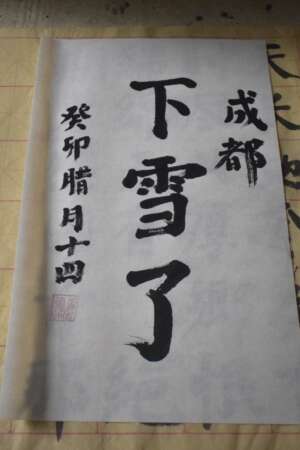 成都
下雪了
癸卯腊月十四